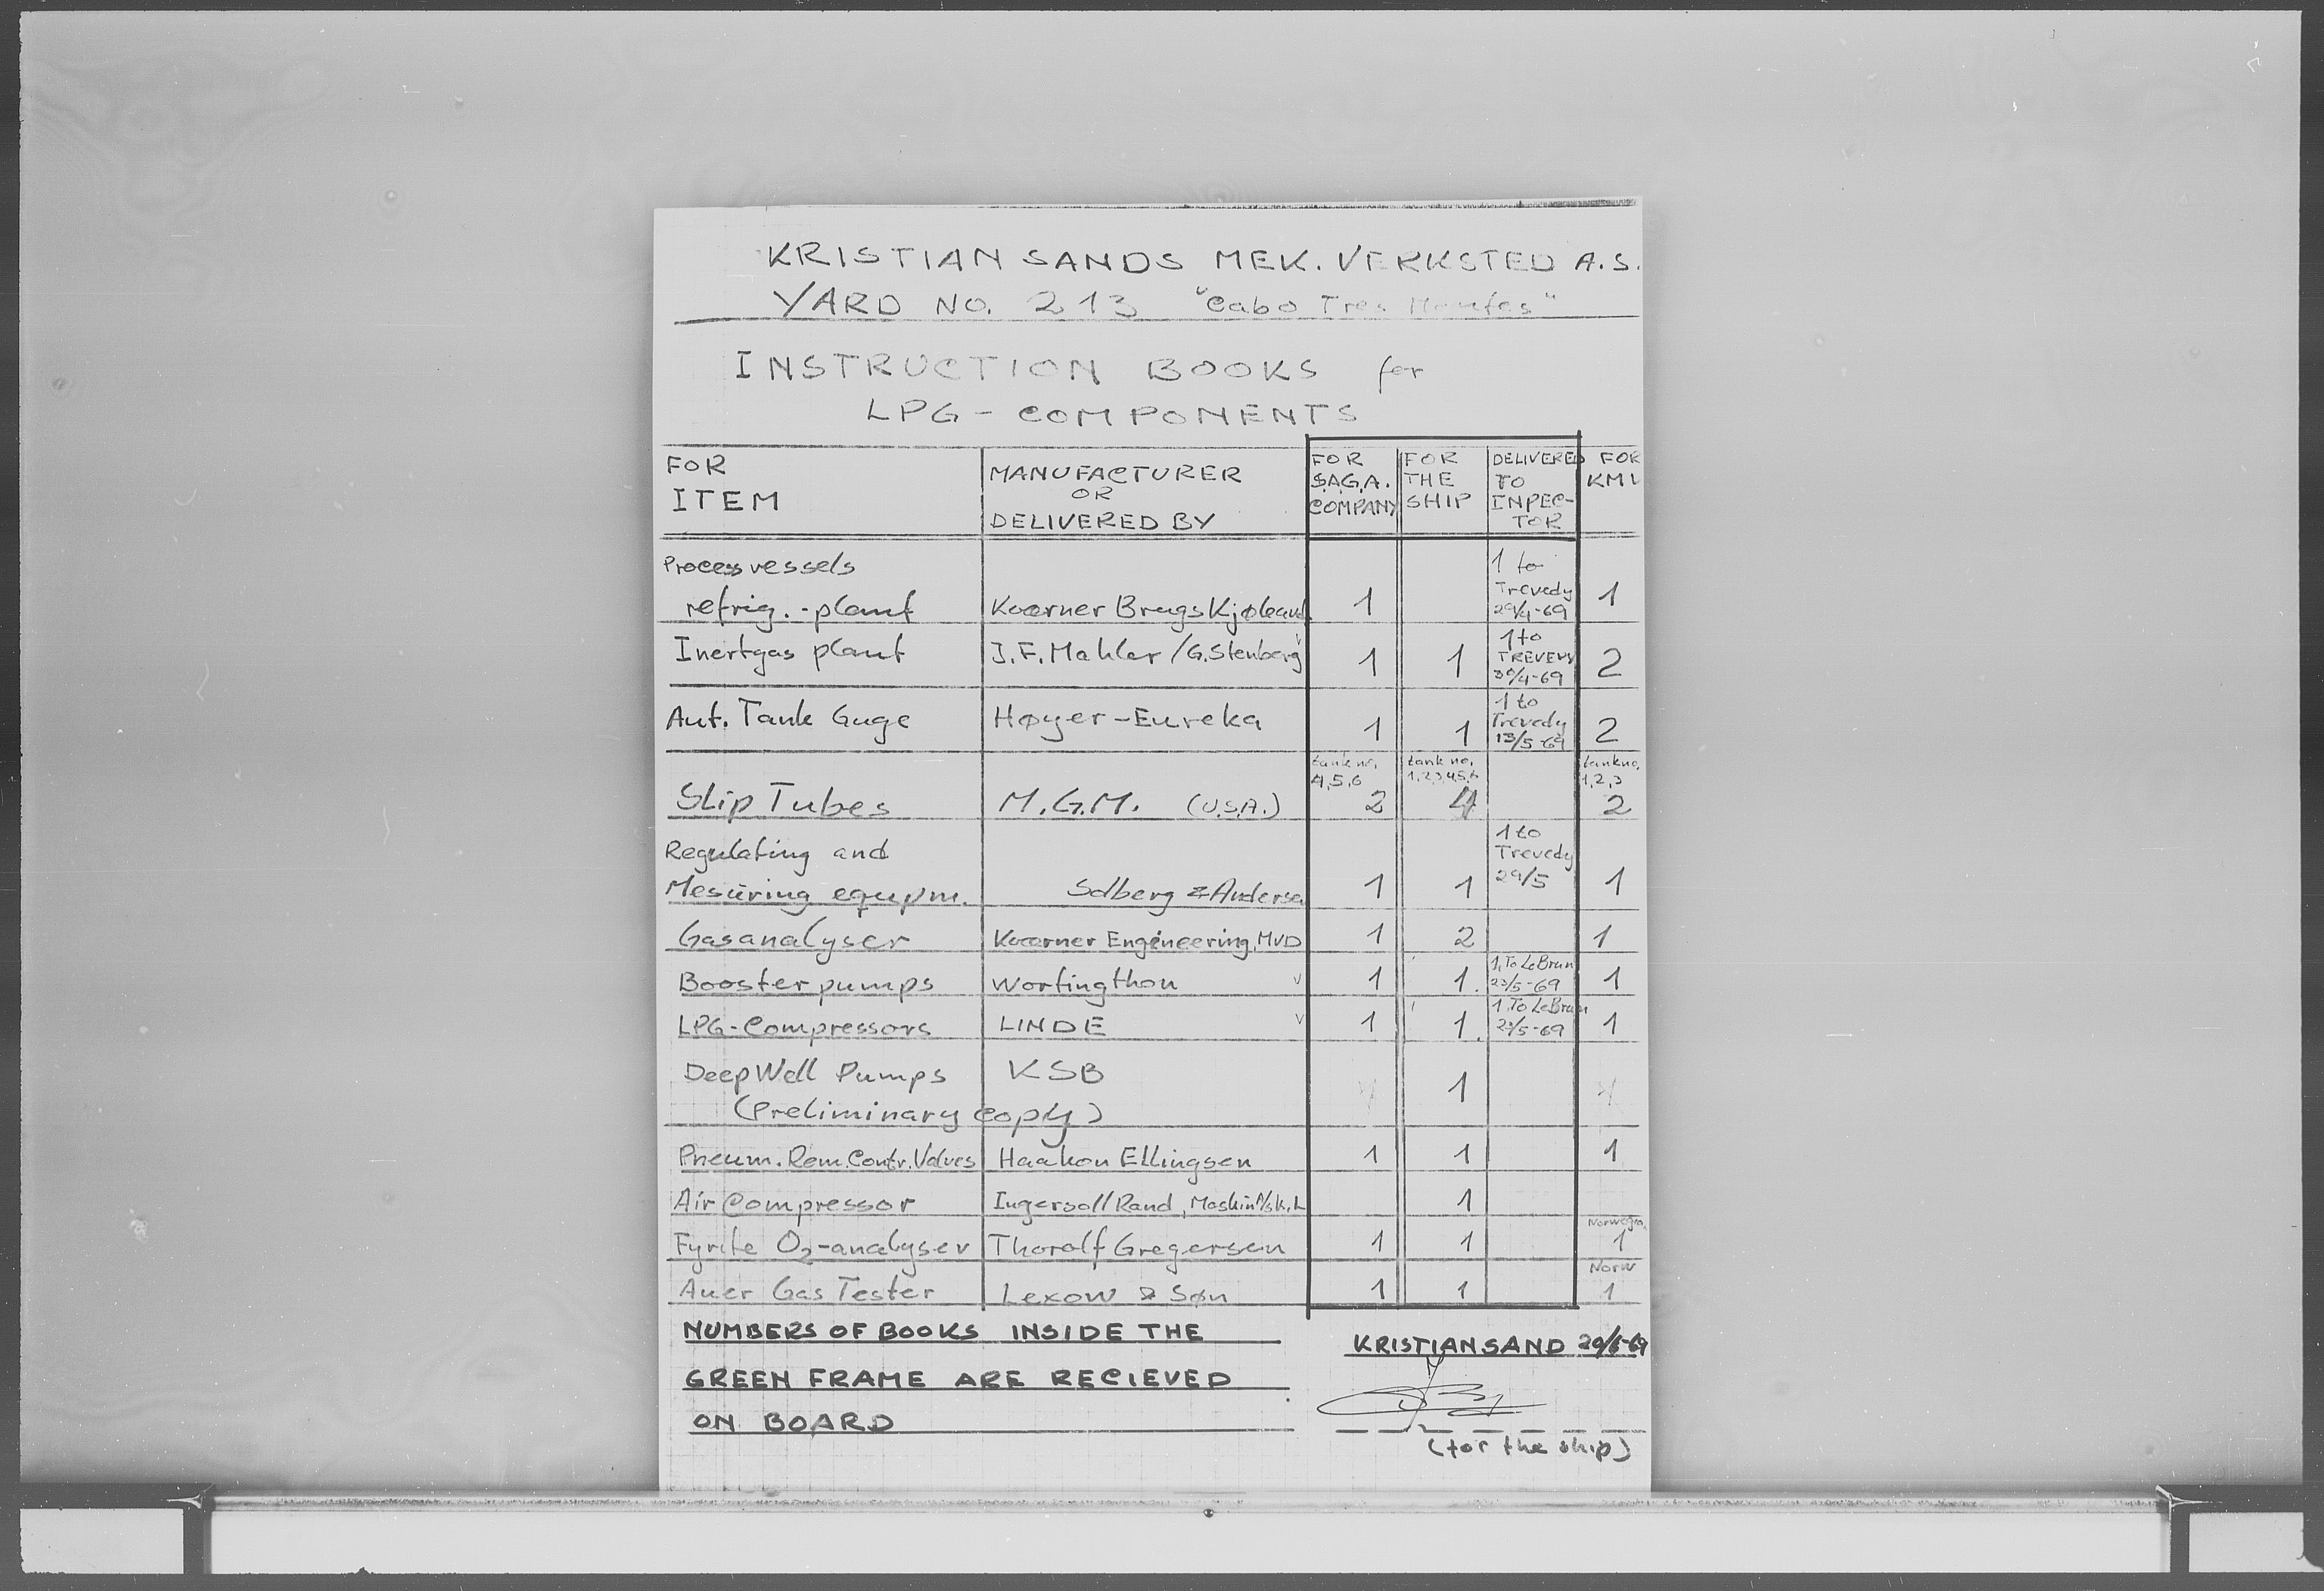 KRISTIANSANDS MEK. VERKSTED A.S.
YARD NO. 213 "Cabo Tres Montes"
INSTRUCTION BOOKS for
LPG - COMPONENTS
FOR ITEM | MANUFACTURER OR DELIVERED BY | FOR S.A.G.A. COMPANY | FOR THE SHIP | DELIVERED TO INPEC-TOR | FOR KMV
Process vessels
refrig. - plant | Kværner Brugs Kjøleavd. | 1 | | 1 to Trevedy 29/4-69 | 1
Inertgas plant | J.F. Mahler / G. Stenberg | 1 | 1 | 1 to 30/4-69 | 2
Aut. Tank Guge | Høyer - Eureka | 1 | 1 | 1 to Trevedy 13/5-69 | 2
Slip Tubes | M.G.M. (U.S.A.) | tank no. 4,5,6 2 | tank no. 1,2,3,4,5,6 4 | | tank no. 1,2,3 2
Regulating and
Mesuring equpm. | Solberg & Anderse | 1 | 1 | 1 to Trevedy 29/5 | 1
Gasanalyser | Kværner Engineering, MVD | 1 | 2 | | 1
Booster pumps | Wortingthon | 1 | 1. | 1. To LeBrun 23/5-69 | 1
LPG-Compressors | LINDE | 1 | 1. | 1. To LeBrun 23/5-69 | 1
Deep Well Pumps | KSB | | 1
(Preliminary copy)
Pneum. Rem. Contr. Valves | Haakon Ellingsen | 1 | 1 | | 1
Air Compressor | Ingersoll Rand, Maskin A/S K.L | | 1
Fyrite O2-analyser | Thoralf Gregersen | 1 | 1 | | Norwegn. 1
Auer Gas Tester | Lexow & Søn | 1 | 1 | | Norw 1
NUMBERS OF BOOKS INSIDE THE
GREEN FRAME ARE RECIEVED
ON BOARD
KRISTIANSAND
(for the ship)